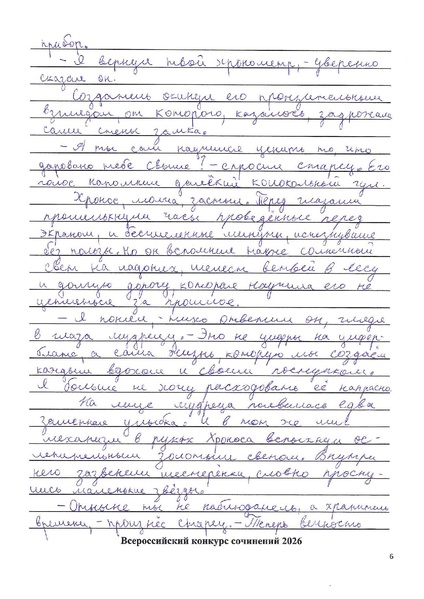 прибор.
– Я вернул твой хронометр, – уверенно
сказал он.
Создатель окинул его пронзительным
взглядом, от которого, казалось, задрожали
сами стены замка.
– А ты сам научился ценить то, что
даровано тебе свыше? – спросил старец. Его
голос напомнил далёкий колокольный гул.
Хронос, молча, застыл. Перед глазами
промелькнули часы проведённые перед
экраном, и бесчисленные минуты, исчезнувшие
без пользы. Но он вспомнил также солнечный
свет на ладонях, шелест ветвей в лесу
и долгую дорогу, которая научила его не
цепляться за прошлое.
– Я понял, – тихо ответил он, глядя
в глаза мудрецу. – Это не цифры на цифер-
блате, а сама жизнь, которую мы создаём
каждым вдохом и своим поступком.
Я больше не хочу расходовать её напрасно
На лице мудреца появилась едва
заметная улыбка. И в тот же миг
механизм в руках Хроноса вспыхнул ос-
лепительным золотым светом. Внутри
него зазвенели шестерёнки, словно просну-
лись маленькие звёзды.
– Отныне ты не наблюдатель, а хранитель
времени, – произнёс старец. – Теперь вечность
Всероссийский конкурс сочинений 2026
6